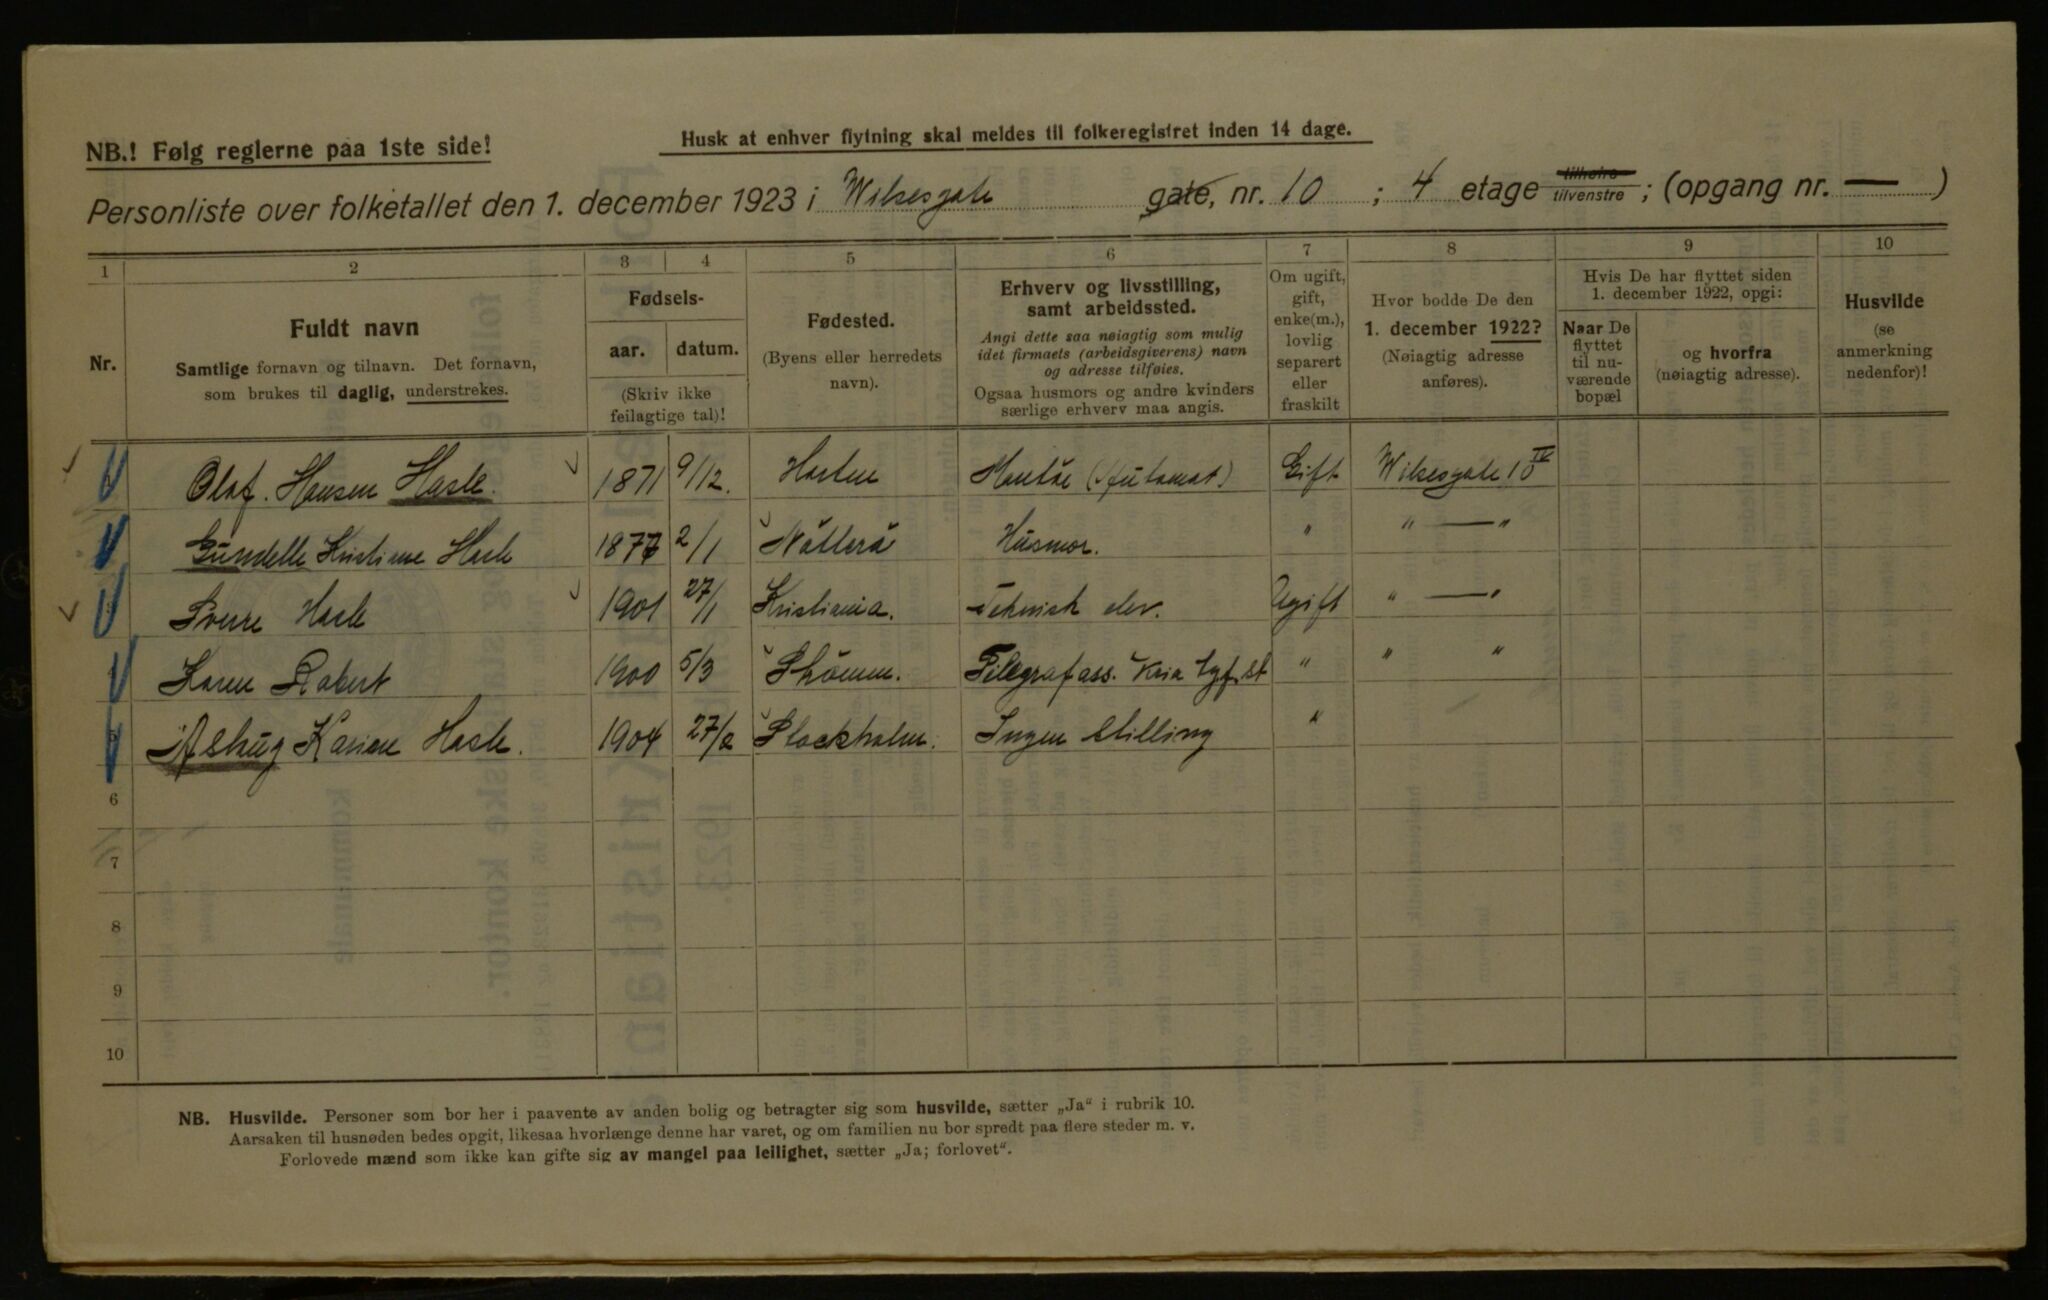 NB.! Følg reglerne paa 1ste side!
Husk at enhver flytning skal meldes til folkeregistret inden 14 dage.
Personliste over folketallet den 1. december 1923 i Wilsesgate gate, nr. 10 ; 4 etage tilhøire tilvenstre ; (opgang nr. — )
1 2 3 4 5 6 7 8 9 10
Nr.
Fuldt navn
Samtlige fornavn og tilnavn. Det fornavn,
som brukes til daglig, understrekes.
Fødsels-
aar. datum.
(Skriv ikke
feilagtige tal)!
Fødested.
(Byens eller herredets
navn).
Erhverv og livsstilling,
samt arbeidssted.
Angi dette saa nøiagtig som mulig
idet firmaets (arbeidsgiverens) navn
og adresse tilføies.
Ogsaa husmors og andre kvinders
særlige erhverv maa angis.
Om ugift,
gift,
enke(m.),
lovlig
separert
eller
fraskilt
Hvor bodde De den
1. december 1922?
(Nøiagtig adresse
anføres).
Hvis De har flyttet siden
1. december 1922, opgi:
Naar De
flyttet
til nu-
værende
bopæl
og hvorfra
(nøiagtig adresse).
Husvilde
(se
anmerkning
nedenfor)!
Olaf. Hansen Hasle. 1871 9/12. Horten Montør (Automat) Gift Wilsesgate 10 IV
Gundelle Kristiane Hasle 1877 2/1 Nøtterø Husmor. " " — "
Sverre Hasle 1901 27/1 Kristiania. Teknisk elev. Ugift " — "
Karen Robert 1900 5/3 Strømm. Telegrafass. Kria tgf.st " " "
5 Aslaug Karine Hasle. 1904 27/2 Stockholm. Ingen stilling "
6
7
8
9
10
NB. Husvilde. Personer som bor her i paavente av anden bolig og betragter sig som husvilde, sætter „Ja“ i rubrik 10.
Aarsaken til husnøden bedes opgit, likesaa hvorlænge denne har varet, og om familien nu bor spredt paa flere steder m. v.
Forlovede mænd som ikke kan gifte sig av mangel paa leilighet, sætter „Ja; forlovet“.